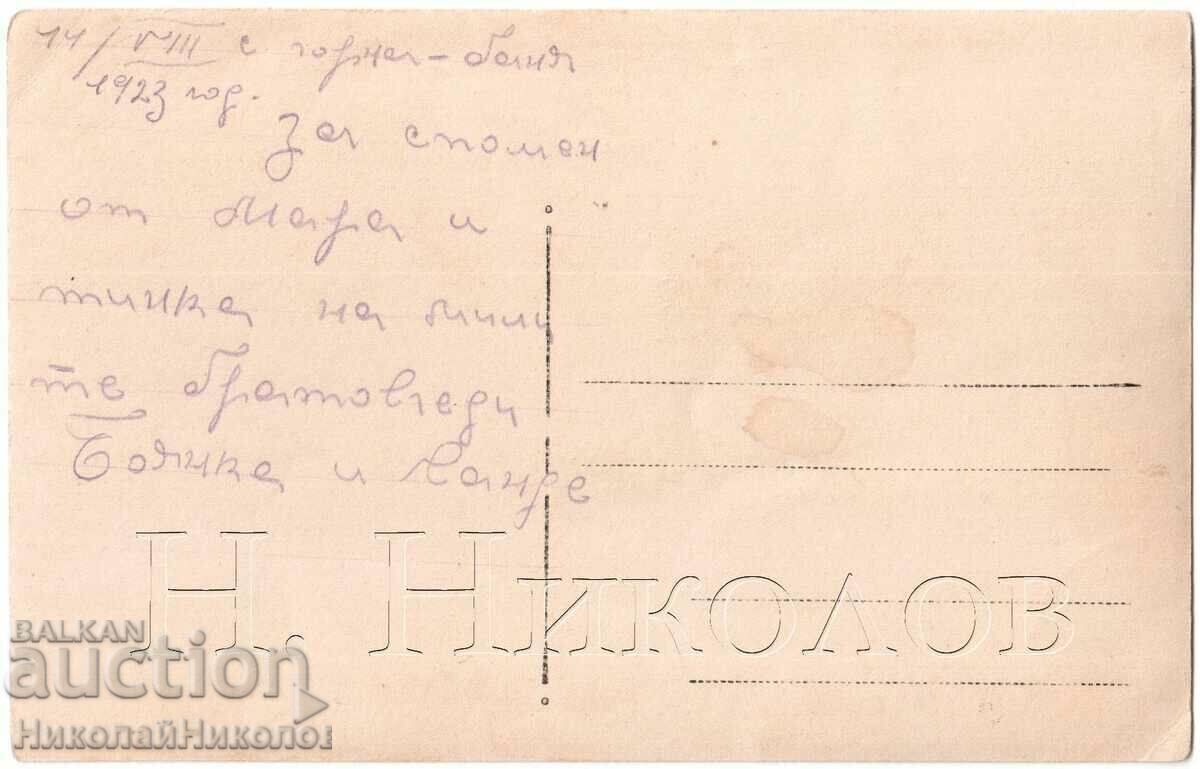 14/VIII с горна-баня
1923 год.
За спомен
от Мара и
тинка на мили
те братовчеди
Бояна и
Н. Николов
BALKAN
auction
НиколайНиколов